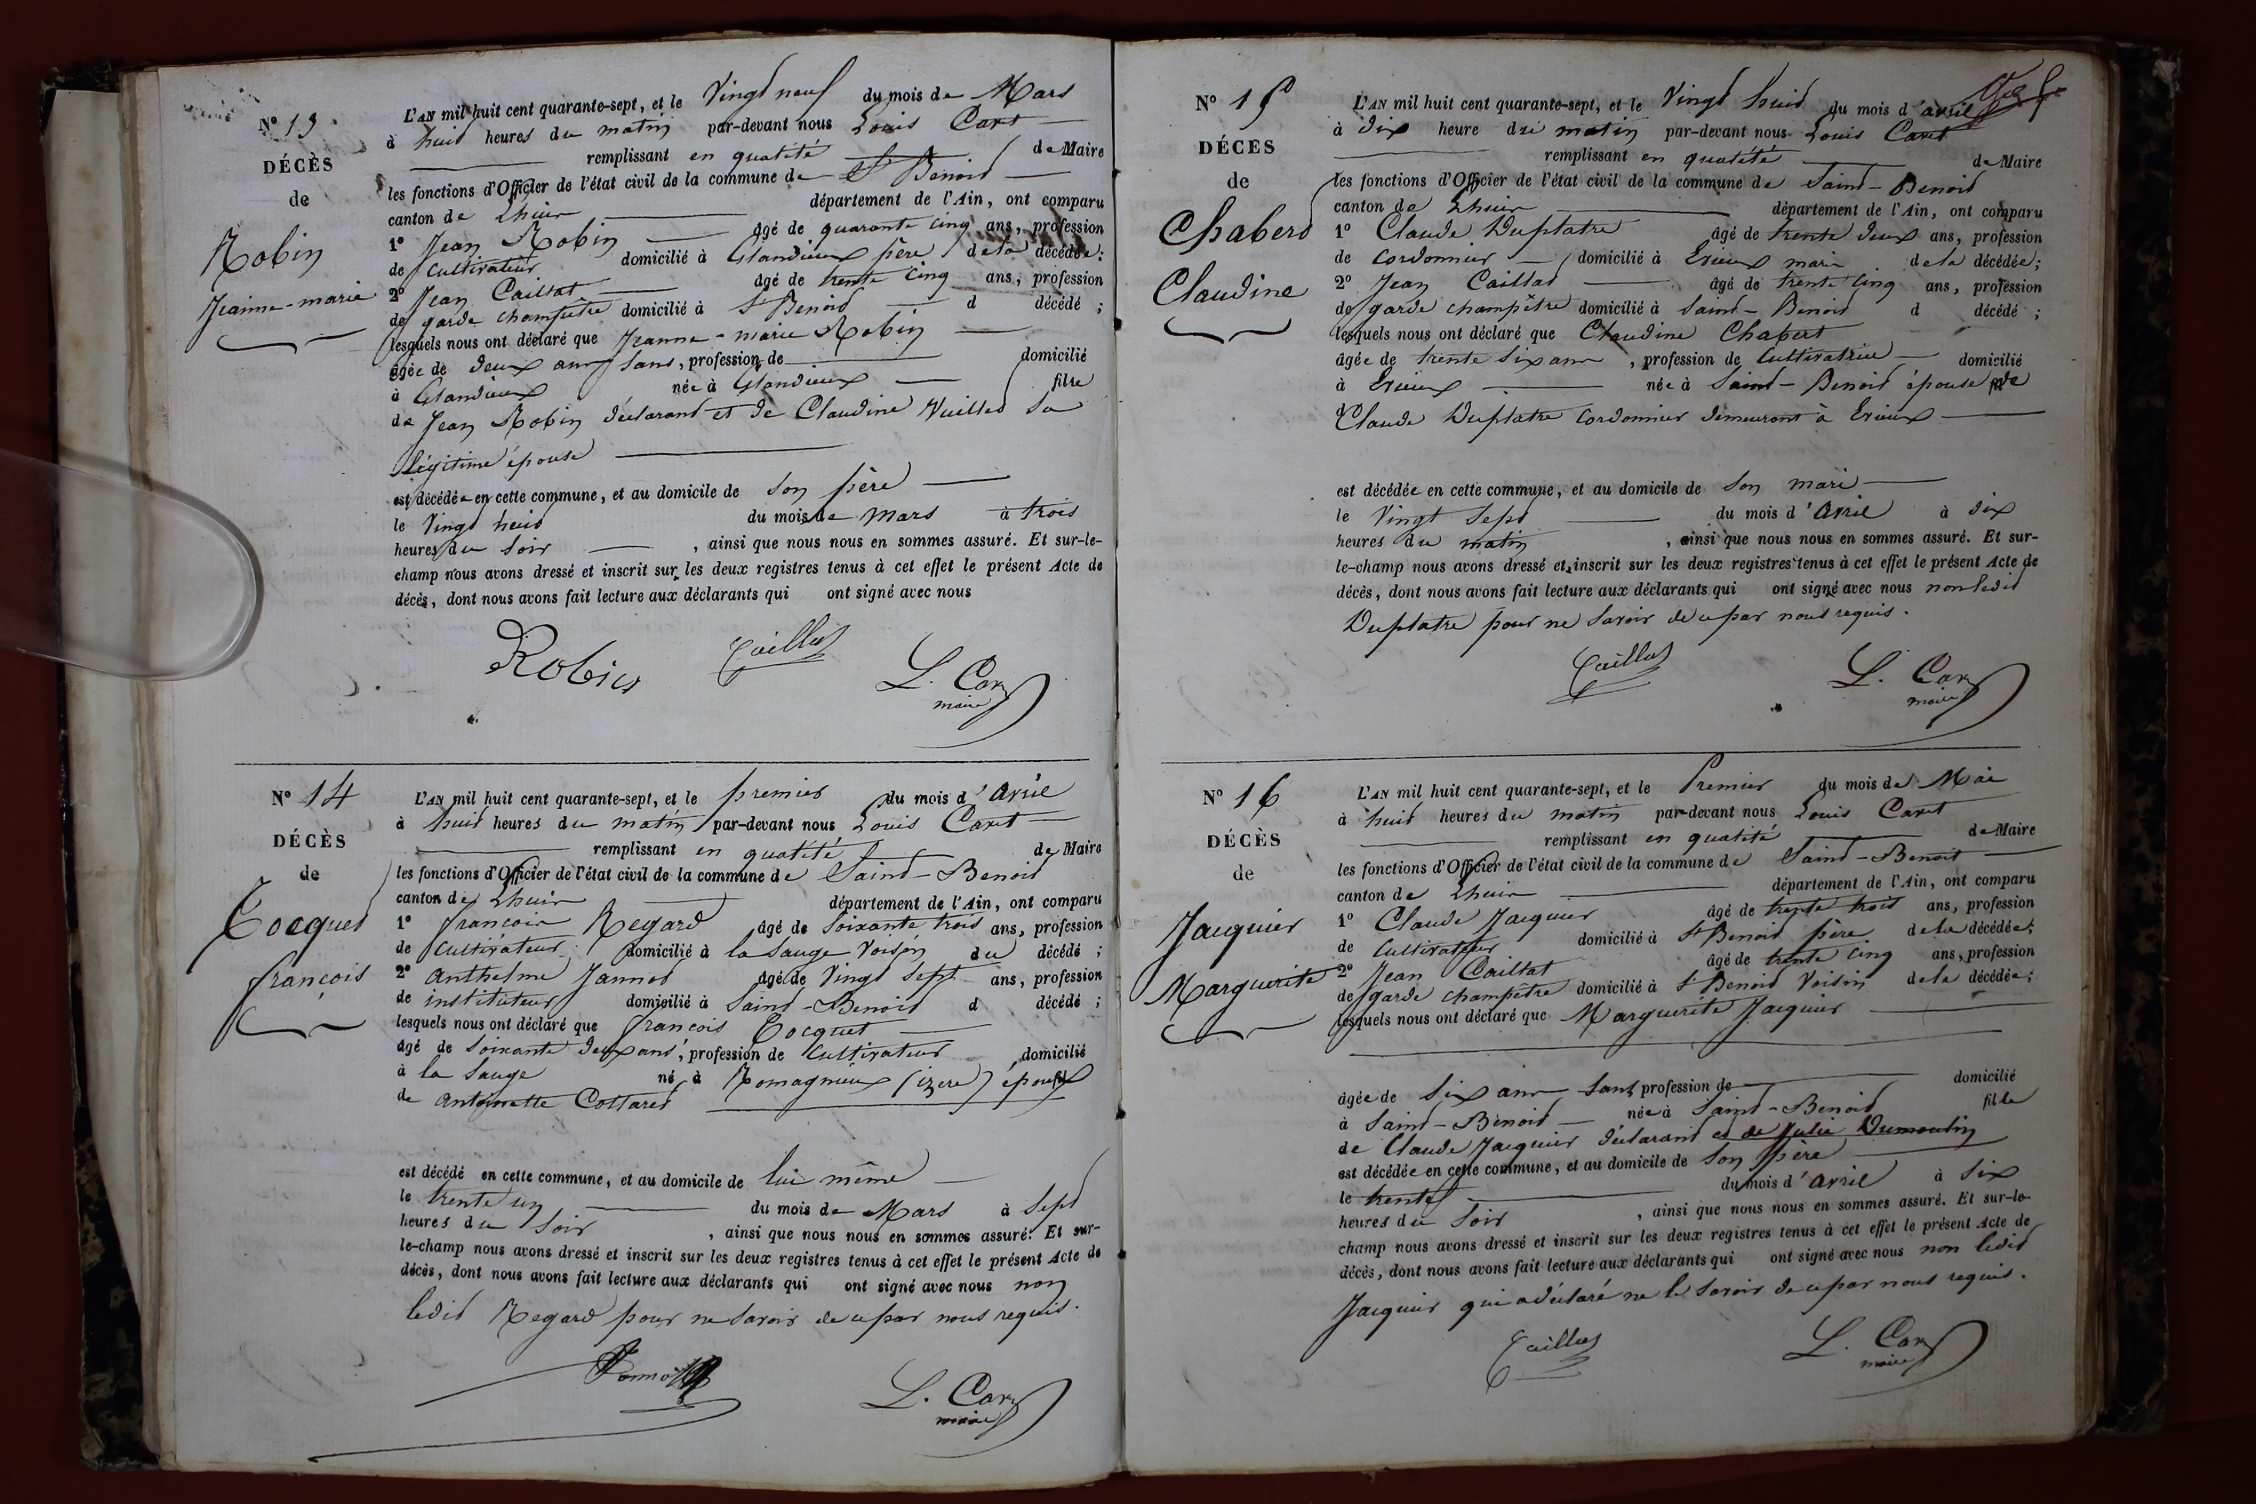 N° 13
DÉCÈS
de
Robin
Jeanne-marie
L'AN mil huit cent quarante-sept, et le Vingt neuf du mois de Mars
à huit heures du matin par-devant nous Louis Caret
remplissant en qualité de Maire
les fonctions d'Officier de l'état civil de la commune de St Benoit
canton de Lhuis département de l'Ain, ont comparu
1° Jean Robin âgé de quarante cinq ans, profession
de cultivateur domicilié à Glandieux père de la décédée;
2° Jean Caillat âgé de trente cinq ans, profession
de garde champêtre domicilié à St Benoit d décédé ;
lesquels nous ont déclaré que Jeanne-marie Robin
âgée de deux ans sans, profession de domicilié
à Glandieux née à Glandieux fille
de Jean Robin déclarant et de Claudine Vuillet sa
légitime épouse
est décédée en cette commune, et au domicile de son père
le Vingt huit du mois de Mars à trois
heures du soir , ainsi que nous nous en sommes assuré. Et sur-le-
champ nous avons dressé et inscrit sur les deux registres tenus à cet effet le présent Acte de
décès, dont nous avons fait lecture aux déclarants qui ont signé avec nous
Robin Caillat L. Caret
maire
N° 14
DÉCÈS
de
Cocquet
françois
L'AN mil huit cent quarante-sept, et le premier du mois d'Avril
à huit heures du matin par-devant nous Louis Caret
remplissant en qualité de Maire
les fonctions d'Officier de l'état civil de la commune de Saint-Benoit
canton de Lhuis département de l'Ain, ont comparu
1° françois Regard âgé de soixante trois ans, profession
de cultivateur domicilié à la Sauge Voisin du décédé ;
2° anthelme Jannot âgé de Vingt sept ans, profession
de instituteur domicilié à Saint-Benoit d décédé ;
lesquels nous ont déclaré que françois Cocquet
âgé de soixante deux ans, profession de cultivateur domicilié
à la Sauge né à Romagnieux (izere) époux
de antoinette Cottaret
est décédé en cette commune, et au domicile de lui même
le trente un du mois de Mars à sept
heures du soir , ainsi que nous nous en sommes assuré. Et sur-
le-champ nous avons dressé et inscrit sur les deux registres tenus à cet effet le présent Acte de
décès, dont nous avons fait lecture aux déclarants qui ont signé avec nous non
ledit Regard pour ne savoir de ce par nous requis.
L. Caret
maire
N° 15
DÉCÈS
de
Chabert
Claudine
L'AN mil huit cent quarante-sept, et le Vingt huit du mois d'avril
à dix heure du matin par-devant nous Louis Caret
remplissant en qualité de Maire
les fonctions d'Officier de l'état civil de la commune de Saint-Benoit
canton de Lhuis département de l'Ain, ont comparu
1° Claude Duplatre âgé de trente deux ans, profession
de cordonnier domicilié à Erieux mari de la décédée;
2° Jean Caillat âgé de trente cinq ans, profession
de garde champêtre domicilié à Saint-Benoit d décédé ;
lesquels nous ont déclaré que Claudine Chabert
âgée de trente six ans , profession de Cultivatrice domicilié
à Erieux née à Saint-Benoit épouse de
Claude Duplatre cordonnier demeurant à Erieux
est décédée en cette commune, et au domicile de son mari
le Vingt sept du mois d'Avril à dix
heures du matin , ainsi que nous nous en sommes assuré. Et sur-
le-champ nous avons dressé et inscrit sur les deux registres tenus à cet effet le présent Acte de
décès, dont nous avons fait lecture aux déclarants qui ont signé avec nous non ledit
Duplatre pour ne savoir de ce par nous requis.
Caillat L. Caret
maire
N° 16
DÉCÈS
de
Jacquier
Marguerite
L'AN mil huit cent quarante-sept, et le Premier du mois de Mai
à huit heures du matin par-devant nous Louis Caret
remplissant en qualité de Maire
les fonctions d'Officier de l'état civil de la commune de Saint-Benoit
canton de Lhuis département de l'Ain, ont comparu
1° Claude Jacquier âgé de trente trois ans, profession
de cultivateur domicilié à St Benoit père de la décédée;
2° Jean Caillat âgé de trente cinq ans, profession
de garde champêtre domicilié à St Benoit Voisin de la décédée;
lesquels nous ont déclaré que Marguerite Jacquier
âgée de six ans sans profession de domicilié
à Saint-Benoit née à Saint-Benoit fille
de Claude Jacquier déclarant et de Julie Dumoulin
est décédée en cette commune, et au domicile de son père
le trente du mois d'avril à six
heures du soir , ainsi que nous nous en sommes assuré. Et sur-le-
champ nous avons dressé et inscrit sur les deux registres tenus à cet effet le présent Acte de
décès, dont nous avons fait lecture aux déclarants qui ont signé avec nous non ledit
Jacquier qui a déclaré ne le savoir de ce par nous requis.
Caillat L. Caret
maire